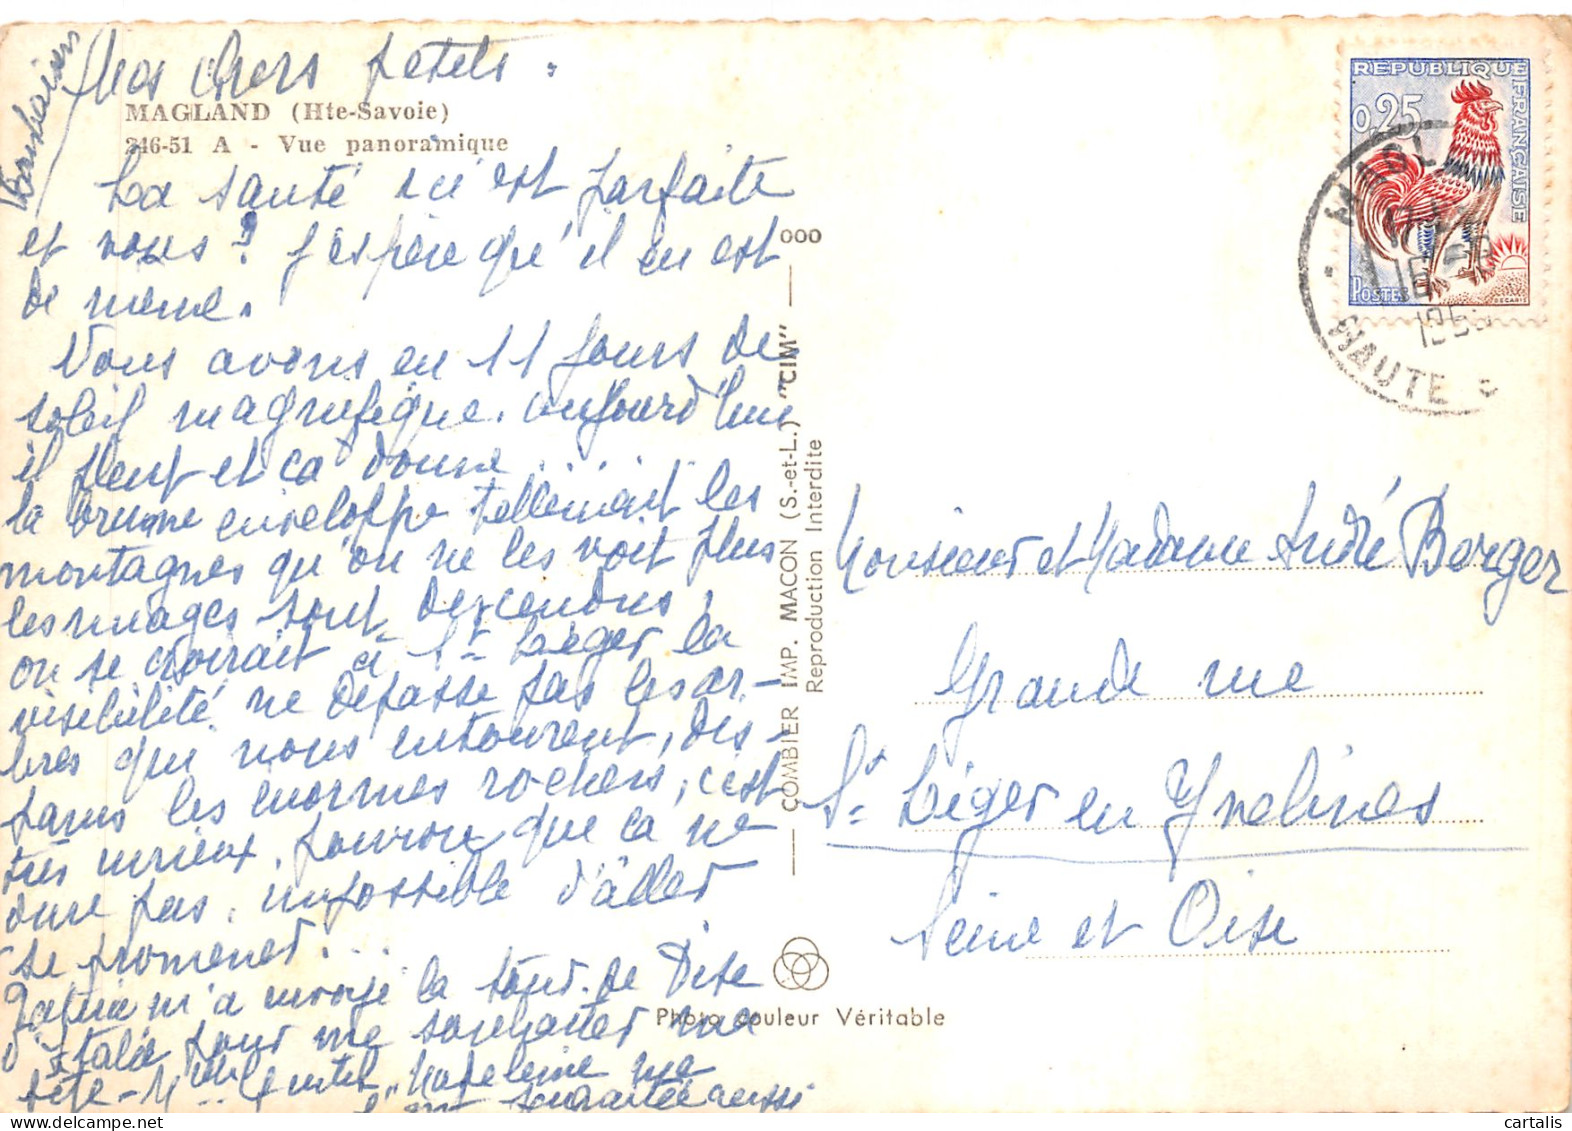 Mes chers petits.
MAGLAND (Hte-Savoie)
246-51 A - Vue panoramique
La santé ici est parfaite
et vous? J'espère qu'il en est
de même.
Nous avons eu 11 jours de
soleil magnifique. aujourd'hui
il pleut et ça donne.....
la brume enveloppe tellement les
montagnes qu'on ne les voit plus
les nuages sont descendus,
on se croirait à St Léger la
visibilité ne dépasse pas les ar-
bres qui nous entourent, dis-
parus les énormes rochers, c'est
très curieux, pourvu que ça ne
dure pas, impossible d'aller
se promener...
m'a envoyé la tour de Pise
d'Italie pour me souhaiter ma
fête - Madeleine me
l'ont souhaitée aussi
Bons baisers
000
COMBIER IMP. MACON (S.-et-L.) "CIM"
Reproduction Interdite
Photo couleur Véritable
REPUBLIQUE FRANÇAISE
0,25
POSTES
DECARIS
MAGL
HAUTE
Monsieur et Madame André Berger
Grande rue
St Léger en Yvelines
Seine et Oise
cartalis